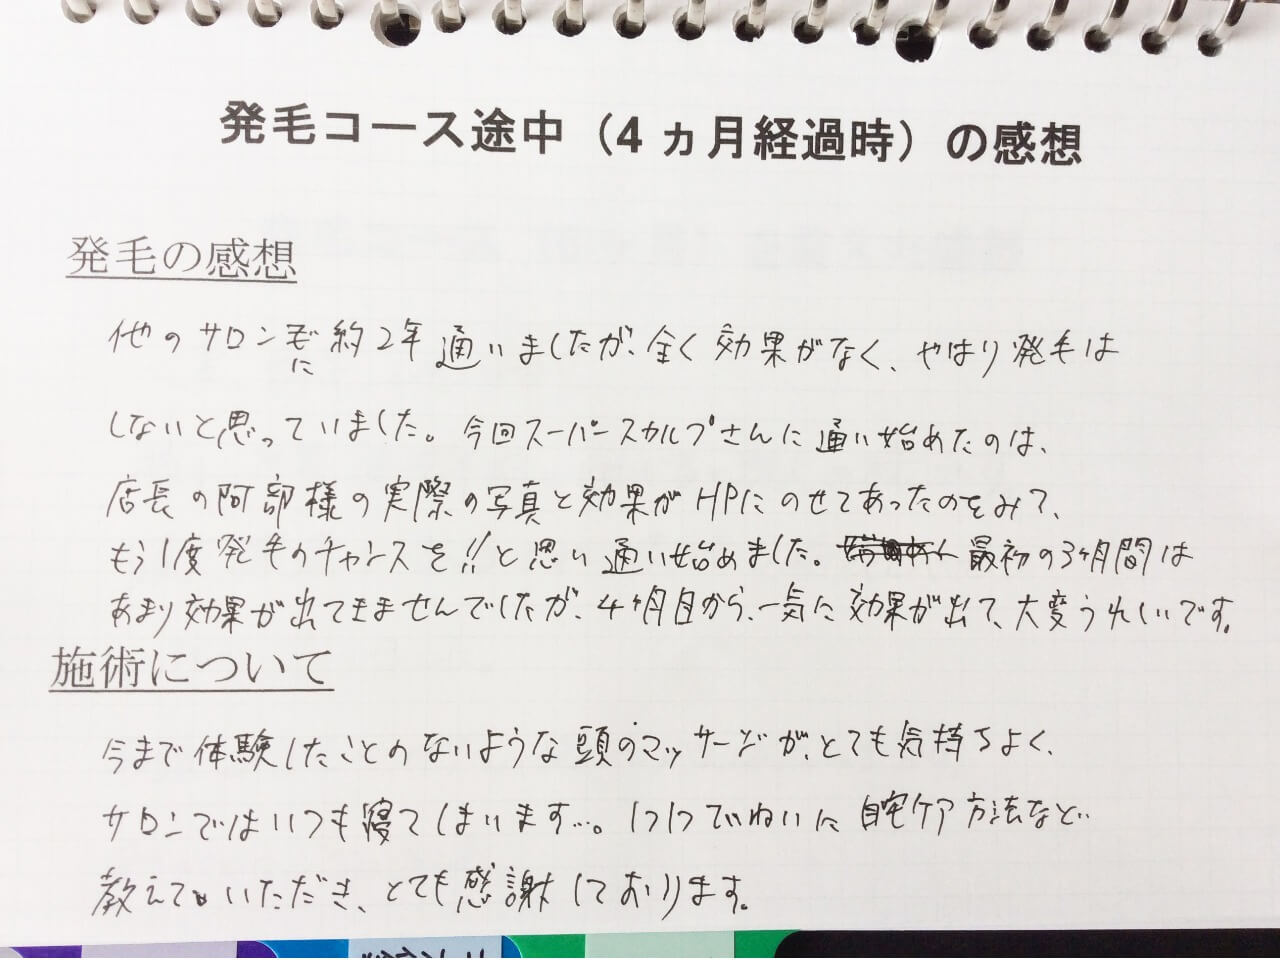 発毛コース途中（4 ヵ月経過時）の感想
発毛の感想
他のサロンに約2年通いましたが、全く効果がなく、やはり発毛は
しないと思っていました。今回スーパースカルプさんに通い始めたのは、
店長の阿部様の実際の写真と効果がHPにのせてあったのをみて、
もう1度発毛のチャンスを!!と思い通い始めました。最初の3ヶ月間は
あまり効果が出てきませんでしたが、4ヶ月目から、一気に効果が出て、大変うれしいです。
施術について
今まで体験したことのないような頭のマッサージが、とても気持ちよく、
サロンではいつも寝てしまいます…。1つ1つていねいに自宅ケア方法など…
教えていただき、とても感謝しております。